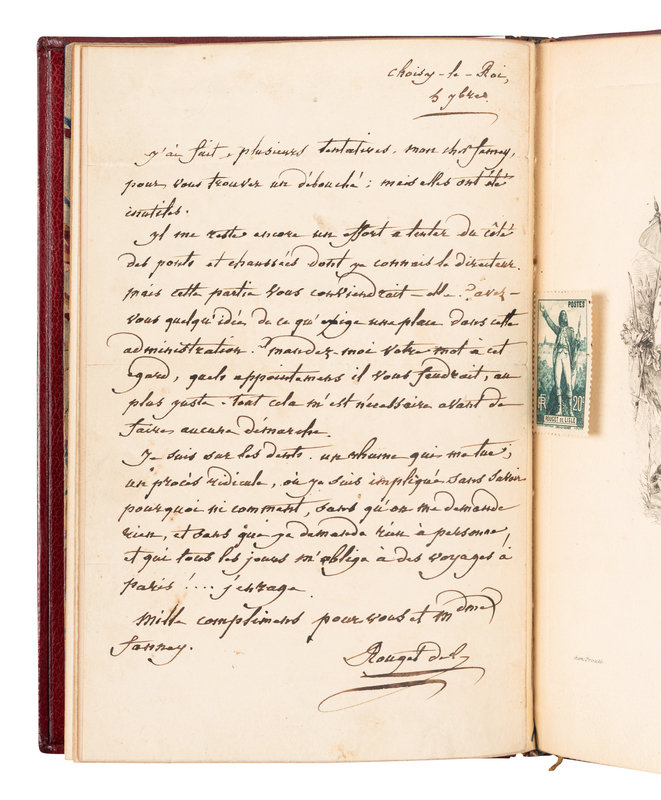 Choisy-le-Roi,
5 9bre.
J'ai fait plusieurs tentatives, mon cher Janney,
pour vous trouver un débouché; mais elles ont été
inutiles.
Il me reste encore un effort a tenter du côté
des ponts et chaussées dont je connais le directeur.
mais cette partie vous conviendrait-elle? avez-
vous quelqu'idée de ce qu'exige une place dans cette
administration? mandez moi votre mot à cet
égard, quels appointemens il vous faudrait, au
plus juste. tout cela m'est nécessaire avant de
faire aucune démarche.
Je suis sur les dents. un rhume qui me tue;
un procès ridicule, où je suis impliqué sans savoir
pourquoi ni comment, sans qu'on me demande
rien, et sans que je demande rien à personne,
et qui tous les jours m'oblige à des voyages à
paris!... j'enrage.
Mille compliments pour vous et Mdme
Janney.
Rouget del
POSTES
RF
20c
ROUGET DE LISLE